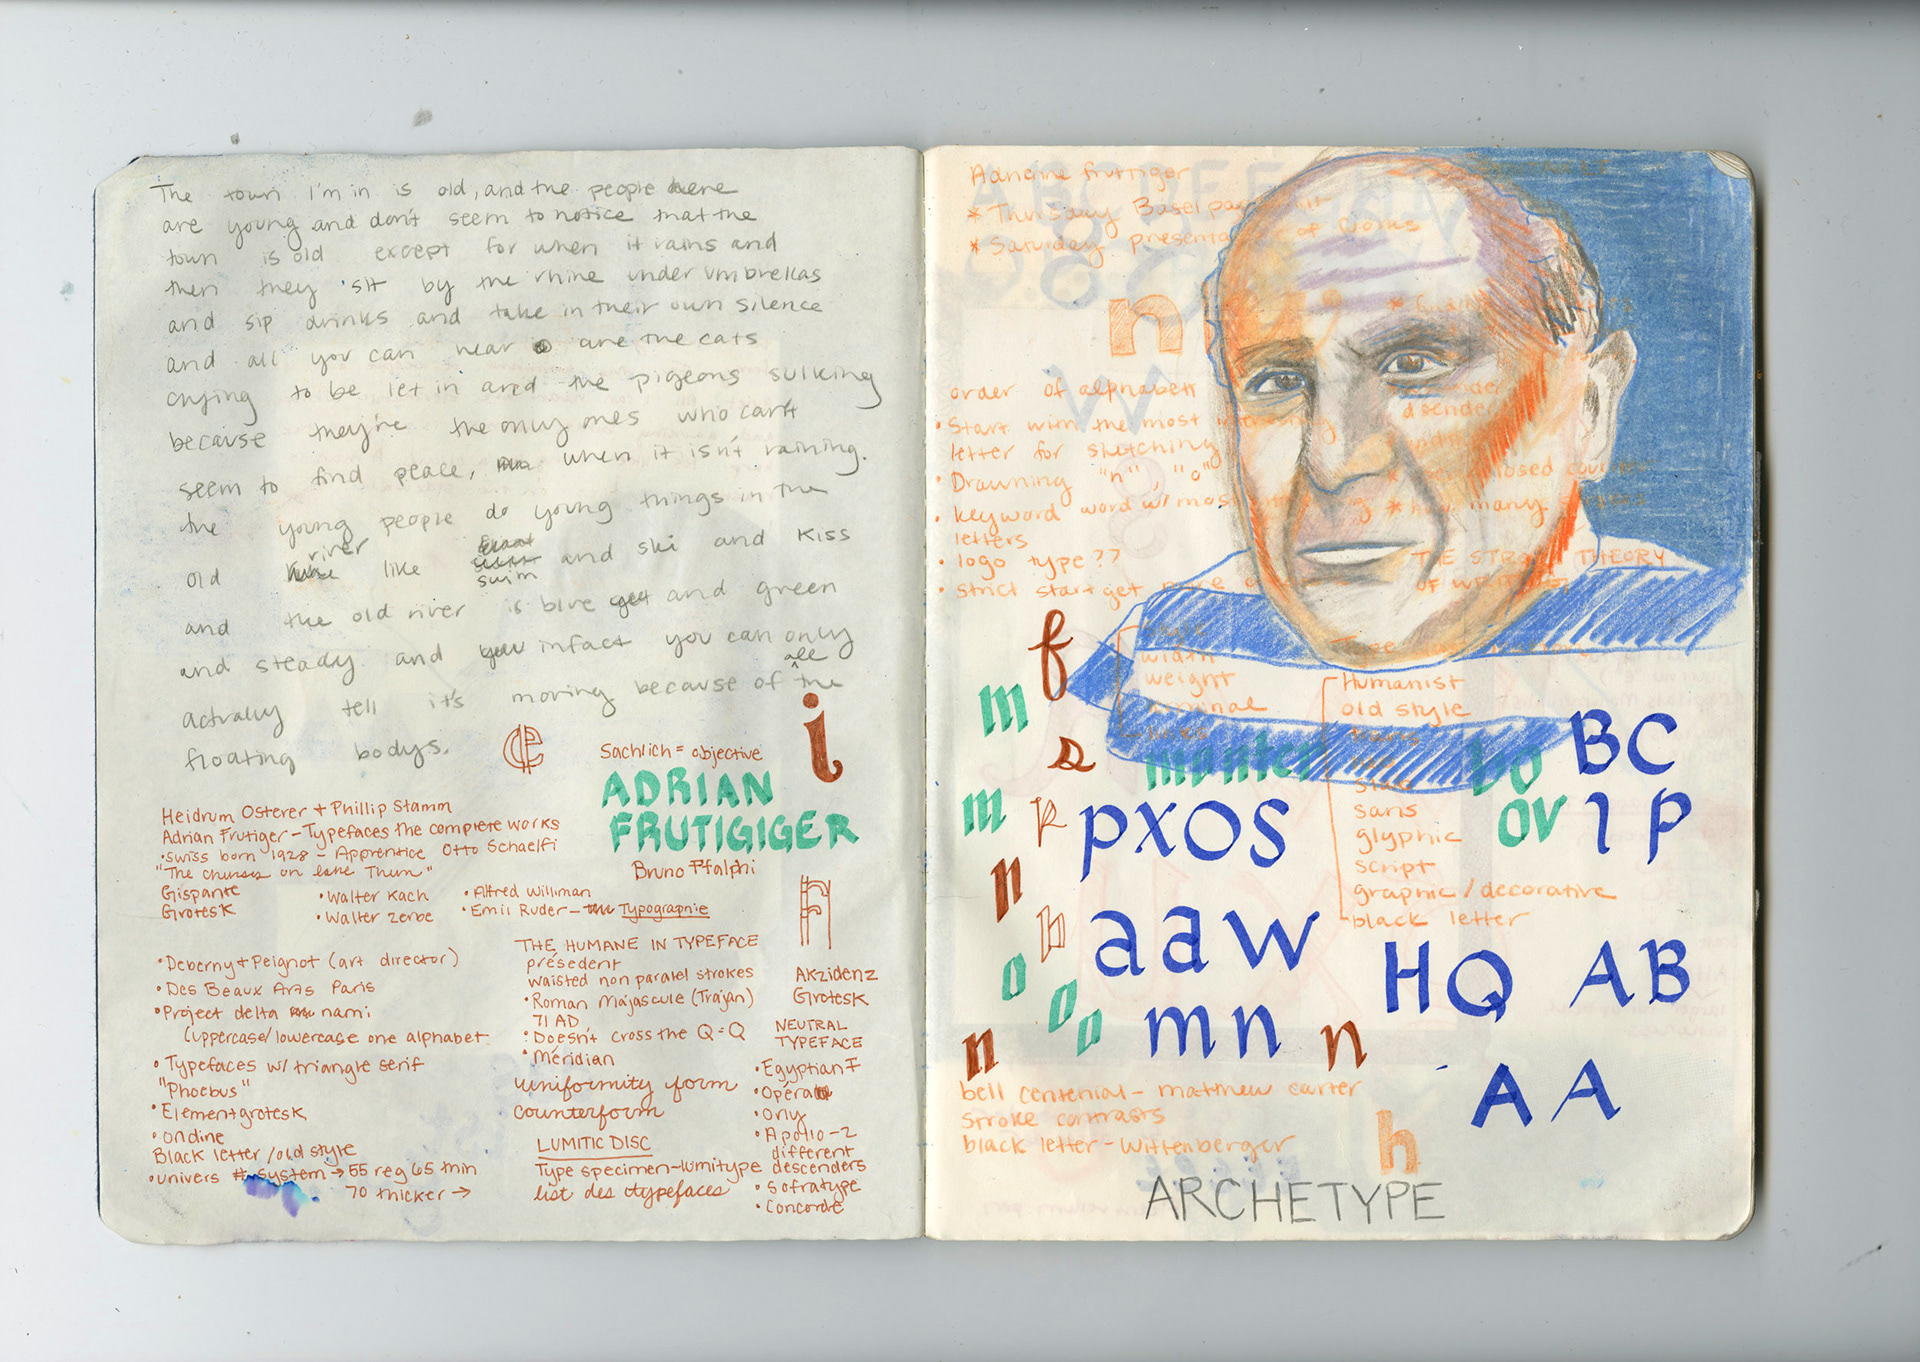 The town I'm in is old, and the people here
are young and don't seem to notice that the
town is old except for when it rains and
then they sit by the rhine under umbrellas
and sip drinks and take in their own silence
and all you can hear are the cats
crying to be let in and the pigeons sulking
because they're the only ones who can't
seem to find peace, when it isn't raining.
the young people do young things in the
old river like swim and ski and kiss
and the old river is blue and green
and steady and infact you can only
actually tell it's moving because of all the
floating bodys.
Sachlich = objective
i
ADRIAN
FRUTIGIGER
Bruno Pfalphi
Heidrum Osterer + Phillip Stamm
Adrian Frutiger - Typefaces the complete works
•Swiss born 1928 - Apprentice Otto Schaelfi
"The churses on lake Thum"
Gispante
Grotesk
•Walter Kach
•Walter zerbe
•Alfred Williman
•Emil Ruder - Typographie
•Deberny + Peignot (art director)
•Des Beaux Arts Paris
•Project delta nami
(uppercase/lowercase one alphabet
•Typefaces w/ triangle serif
"Phoebus"
•Elementgrotesk
•ondine
Black letter /old style
•univers # system → 55 reg 65 min
70 thicker →
THE HUMANE IN TYPEFACE
présedent
waisted non paralel strokes
•Roman Majascule (Trajan)
71 AD
•Doesn't cross the Q = Q
•Méridian
uniformity form
counterform
LUMITIC DISC
Type specimen-lumitype
list des typefaces
Akzidenz
Grotesk
NEUTRAL
TYPEFACE
•Egyptian F
•Opéra
•Only
•Apollo - 2
different
descenders
•Sofratype
•Concorde
Adnerine fruttiger
* Thursday Basel
* Saturday of works
n
order of alphabett
•Start with the most
letter for sketching
•Drawning "n", "o"
•keyword word w/ most
letters
•logo type??
•strict start get
THE THEORY
OF
width
weight
Humanist
old style
sans
glyphic
script
graphic / decorative
black letter
f
m
s
m
k
n
h
o
o
o
n
bo
ov
BC
pxos
1 P
aaw
HQ AB
mn
n
A A
bell centenial - matthew carter
stroke contrasts
black letter - Wittenberger
h
ARCHETYPE